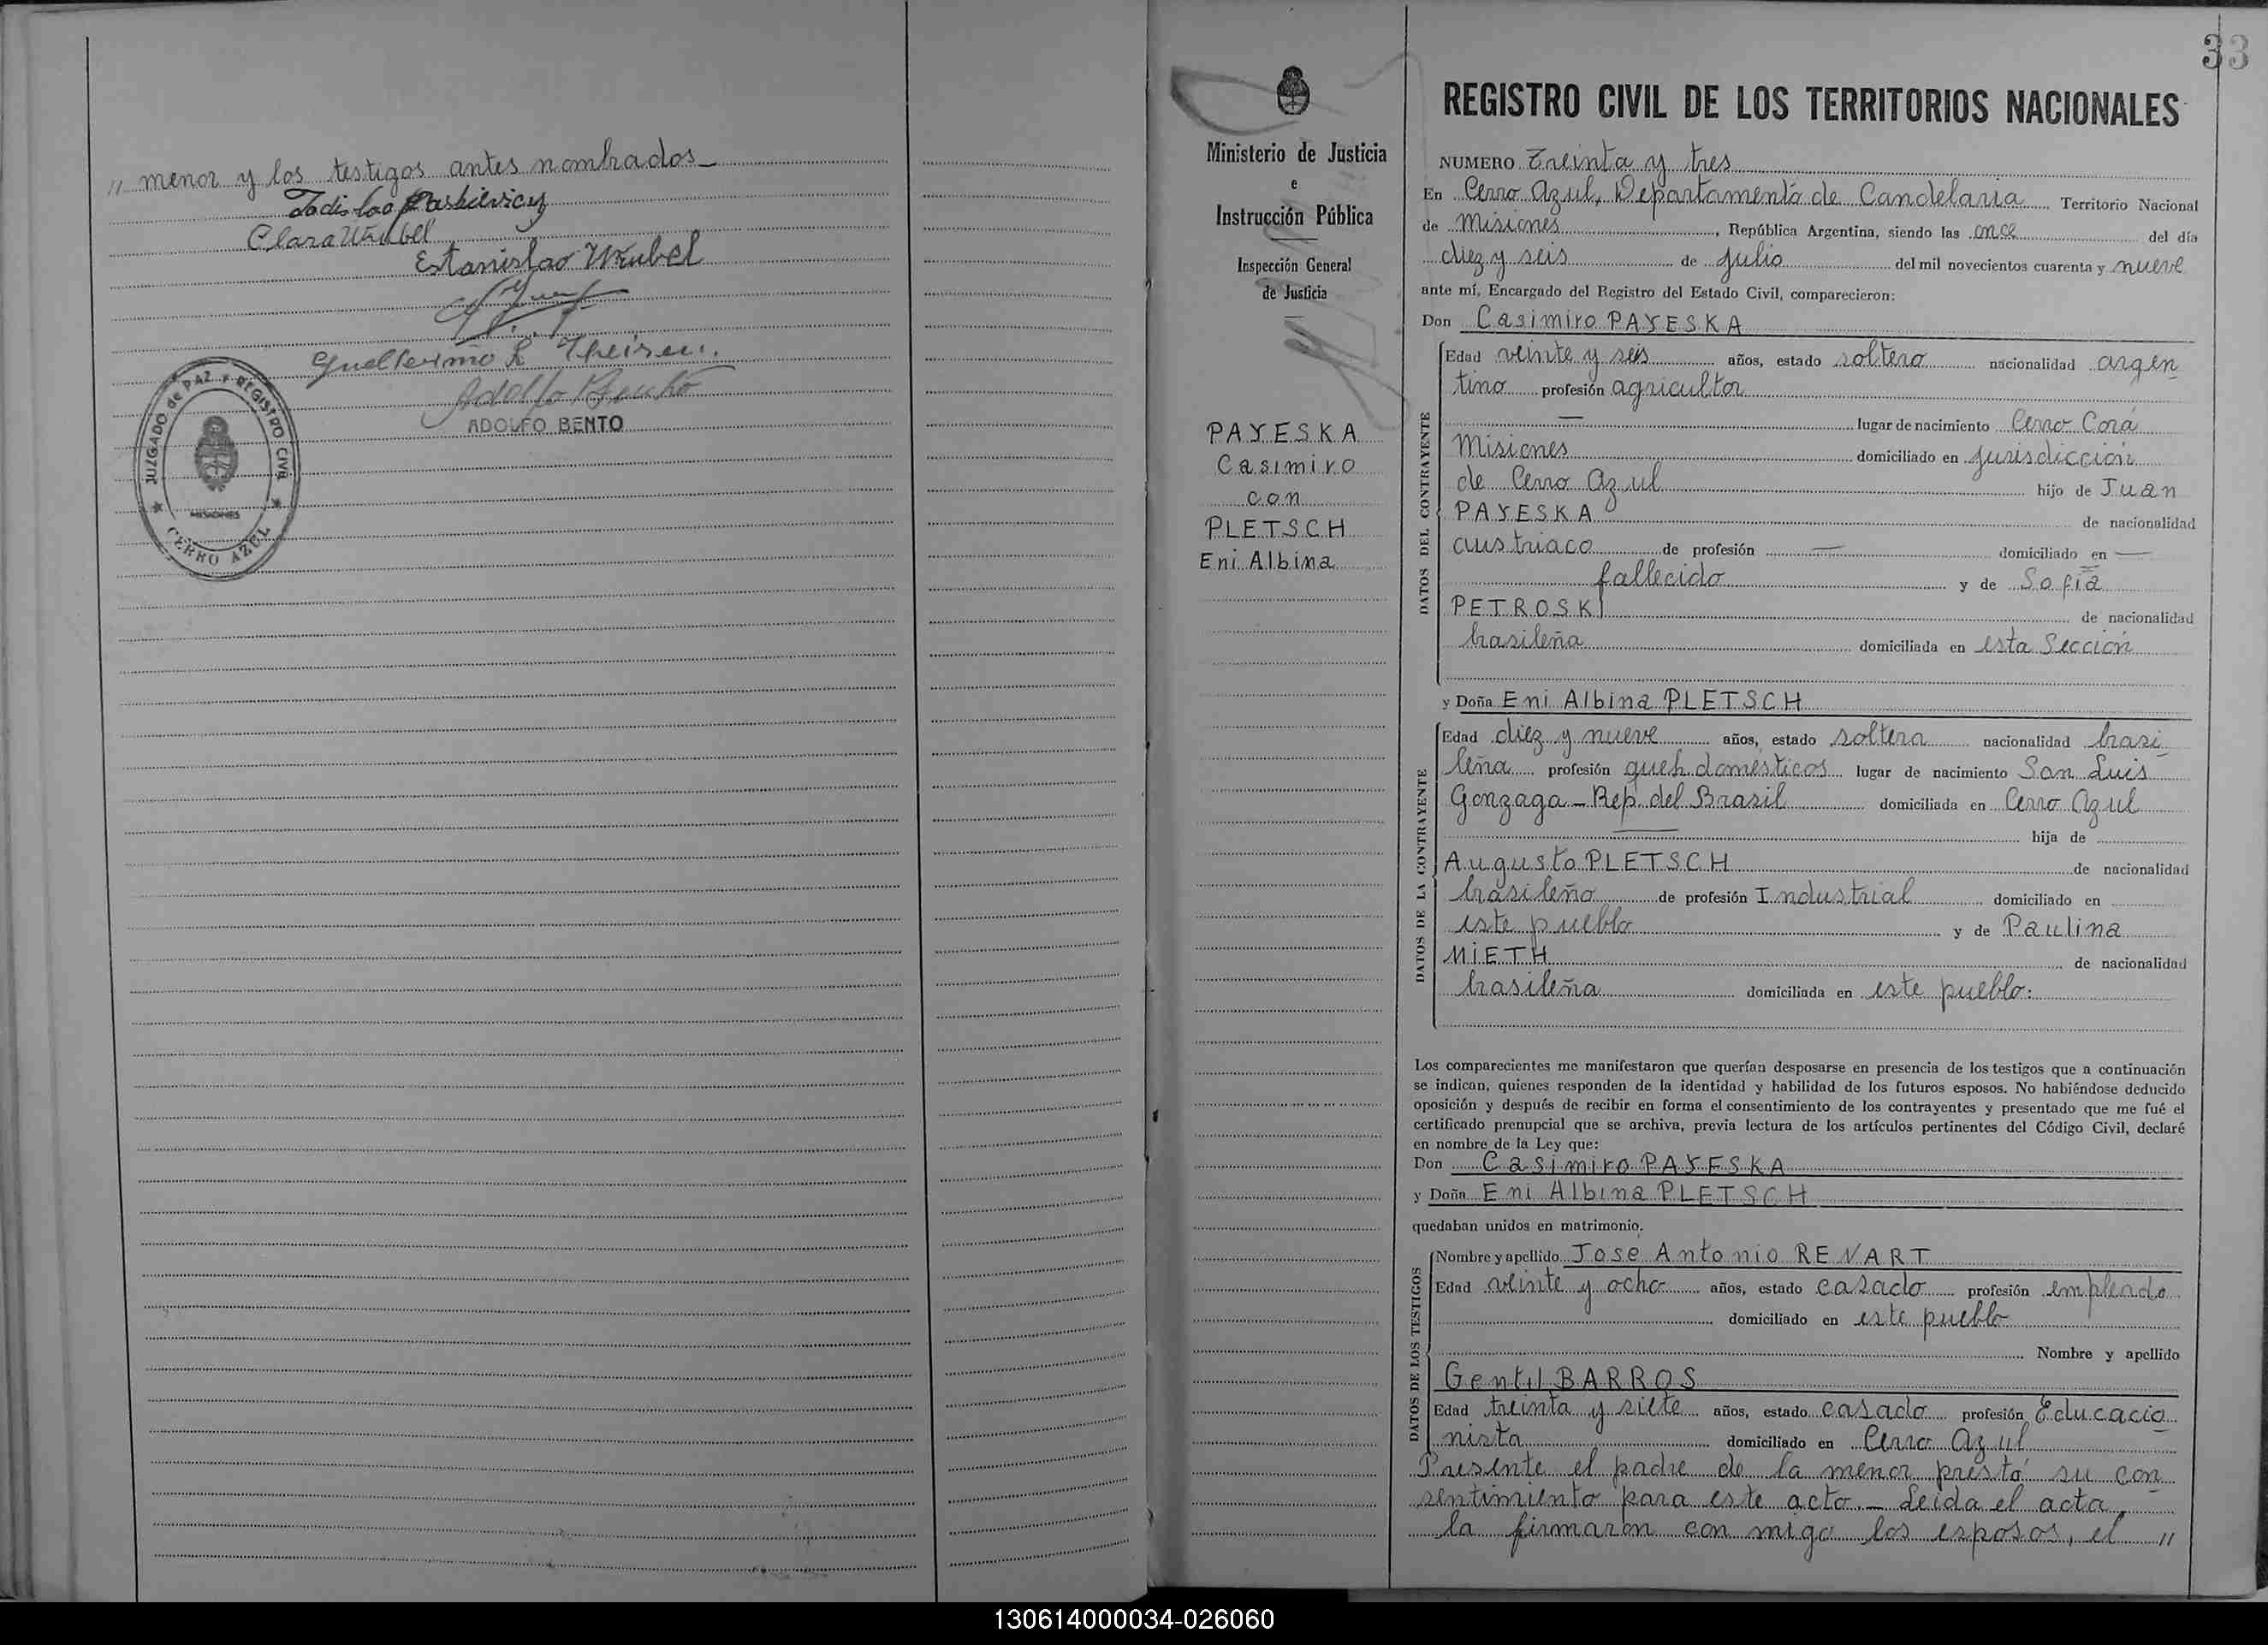 " menor y los testigos antes nombrados_
Clara Wrubel
Estanislao Wrubel
Guillermo R Theisen.
ADOLFO BENTO
JUZGADO de PAZ Y REGISTRO CIVIL
MISIONES
CERRO AZUL
33
Ministerio de Justicia
e
Instrucción Pública
Inspección General
de Justicia
PAYESKA
Casimiro
con
PLETSCH
Eni Albina
REGISTRO CIVIL DE LOS TERRITORIOS NACIONALES
NUMERO Treinta y tres
En Cerro Azul, Departamento de Candelaria Territorio Nacional
de Misiones, República Argentina, siendo las once del día
diez y seis de julio del mil novecientos cuarenta y nueve
ante mí, Encargado del Registro del Estado Civil, comparecieron:
Don Casimiro PAYESKA
DATOS DEL CONTRAYENTE
Edad veinte y seis años, estado soltero nacionalidad argen
tino profesión agricultor
— lugar de nacimiento Cerro Corá
Misiones domiciliado en jurisdicción
de Cerro Azul hijo de Juan
PAYESKA de nacionalidad
austriaco de profesión — domiciliado en —
fallecido y de Sofía
PETROSKI de nacionalidad
brasileña domiciliada en esta Sección
y Doña Eni Albina PLETSCH
DATOS DE LA CONTRAYENTE
Edad diez y nueve años, estado soltera nacionalidad brasi
leña profesión queh. domésticos lugar de nacimiento San Luis
Gonzaga - Rep. del Brasil domiciliada en Cerro Azul
— hija de
Augusto PLETSCH de nacionalidad
brasileño de profesión Industrial domiciliado en
este pueblo y de Paulina
MIETH de nacionalidad
brasileña domiciliada en este pueblo.
Los comparecientes me manifestaron que querían desposarse en presencia de los testigos que a continuación
se indican, quienes responden de la identidad y habilidad de los futuros esposos. No habiéndose deducido
oposición y después de recibir en forma el consentimiento de los contrayentes y presentado que me fué el
certificado prenupcial que se archiva, previa lectura de los artículos pertinentes del Código Civil, declaré
en nombre de la Ley que:
Don Casimiro PAYESKA
y Doña Eni Albina PLETSCH
quedaban unidos en matrimonio.
DATOS DE LOS TESTIGOS
Nombre y apellido José Antonio RENART
Edad veinte y ocho años, estado casado profesión empleado
domiciliado en este pueblo
Nombre y apellido
Gentil BARROS
Edad treinta y siete años, estado casado profesión Educacio
nista domiciliado en Cerro Azul
Presente el padre de la menor prestó su con
sentimiento para este acto. — Leída el acta
la firmaron con migo los esposos, el "
130614000034-026060